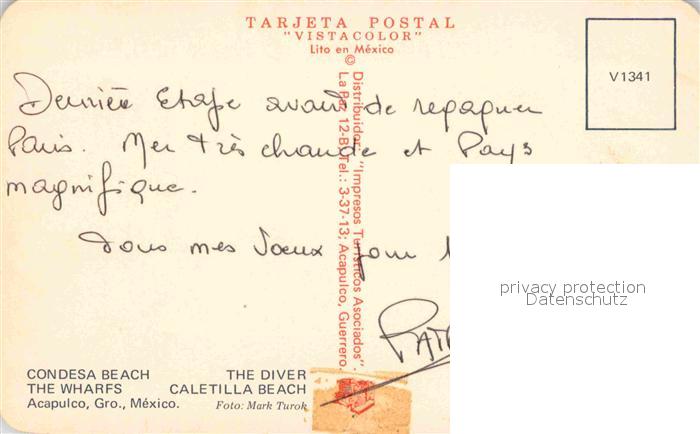 TARJETA POSTAL
"VISTACOLOR"
Lito en México
©
V1341
Dernière Etape avant de regagner
Paris. Mer très chaude et Pays
magnifique.
Tous mes Voeux pour
Distribuidor: "Impresos Turísticos Asociados".
Tel.: 3-37-13; Acapulco, Guerrero.
privacy protection
Datenschutz
CONDESA BEACH THE DIVER
THE WHARFS CALETILLA BEACH
Acapulco, Gro., México. Foto: Mark Turok